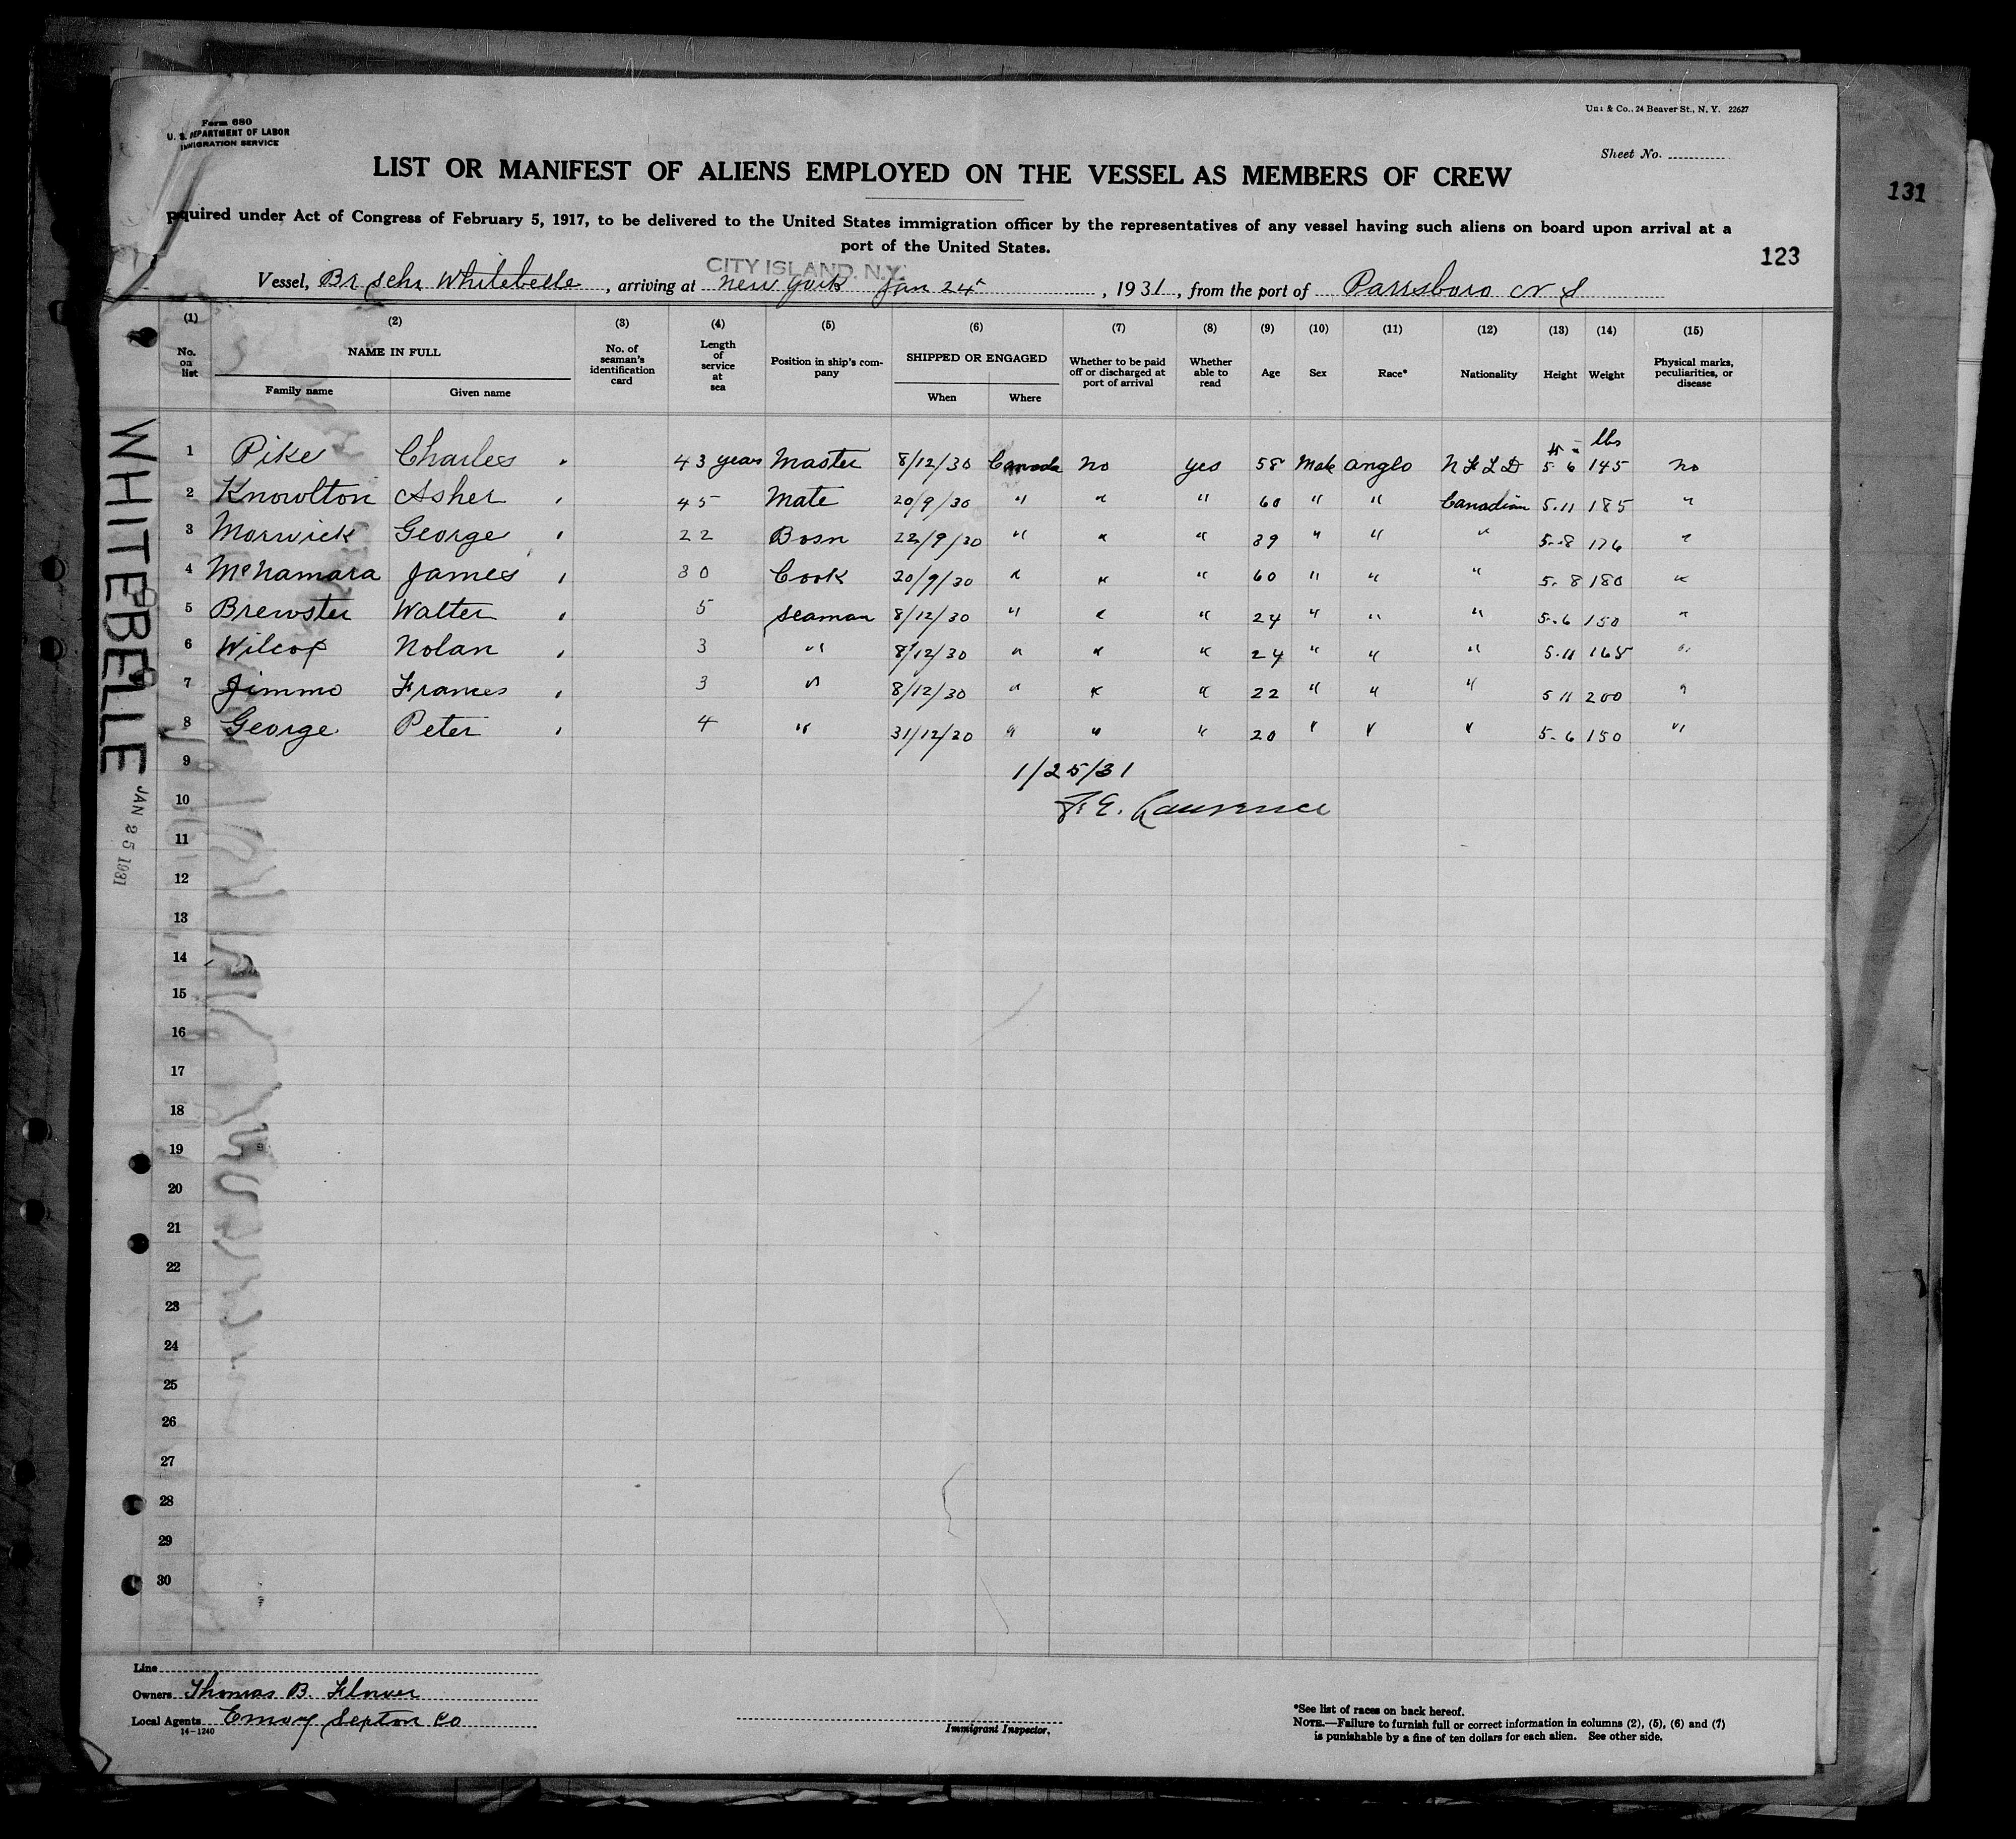 Form 680
U. S. DEPARTMENT OF LABOR
IMMIGRATION SERVICE
& Co., 24 Beaver St., N. Y. 22627
Sheet No.
LIST OR MANIFEST OF ALIENS EMPLOYED ON THE VESSEL AS MEMBERS OF CREW
131
quired under Act of Congress of February 5, 1917, to be delivered to the United States immigration officer by the representatives of any vessel having such aliens on board upon arrival at a
port of the United States.
123
CITY ISLAND, N.Y.
Vessel, Br Schr Whitebelle, arriving at New York Jan 24, 1931, from the port of Parrsboro N S
(1) (2) (3) (4) (5) (6) (7) (8) (9) (10) (11) (12) (13) (14) (15)
No. on list NAME IN FULL Family name Given name No. of seaman's identification card Length of service at sea Position in ship's company SHIPPED OR ENGAGED When Where Whether to be paid off or discharged at port of arrival Whether able to read Age Sex Race* Nationality Height Weight Physical marks, peculiarities, or disease
lbs
1 Pike Charles 43 years Master 8/12/30 Canada no yes 58 Male anglo N F L D 5-6 145 no
2 Knowlton Asher 45 Mate 20/9/30 " " " 60 " " Canadian 5.11 185 "
3 Morwick George 22 Bosn 22/9/30 " " " 39 " " " 5-8 176 "
4 McNamara James 30 Cook 20/9/30 " " " 60 " " " 5-8 180 "
5 Brewster Walter 5 Seaman 8/12/30 " " " 24 " " " 5-6 150 "
6 Wilcox Nolan 3 " 8/12/30 " " " 24 " " " 5.11 165 "
7 Jimmo Frances 3 " 8/12/30 " " " 22 " " " 5 11 200 "
8 George Peter 4 " 31/12/30 " " " 20 " " " 5-6 150 "
9
1/25/31
10
F. E. Lawrence
11
12
13
14
15
16
17
18
19
20
21
22
23
24
25
26
27
28
29
30
WHITEBELLE
JAN 25 1931
Line
Owners Thomas B.
Local Agents Sexton Co
14-1240
Immigrant Inspector.
*See list of races on back hereof.
NOTE.—Failure to furnish full or correct information in columns (2), (5), (6) and (7)
is punishable by a fine of ten dollars for each alien. See other side.